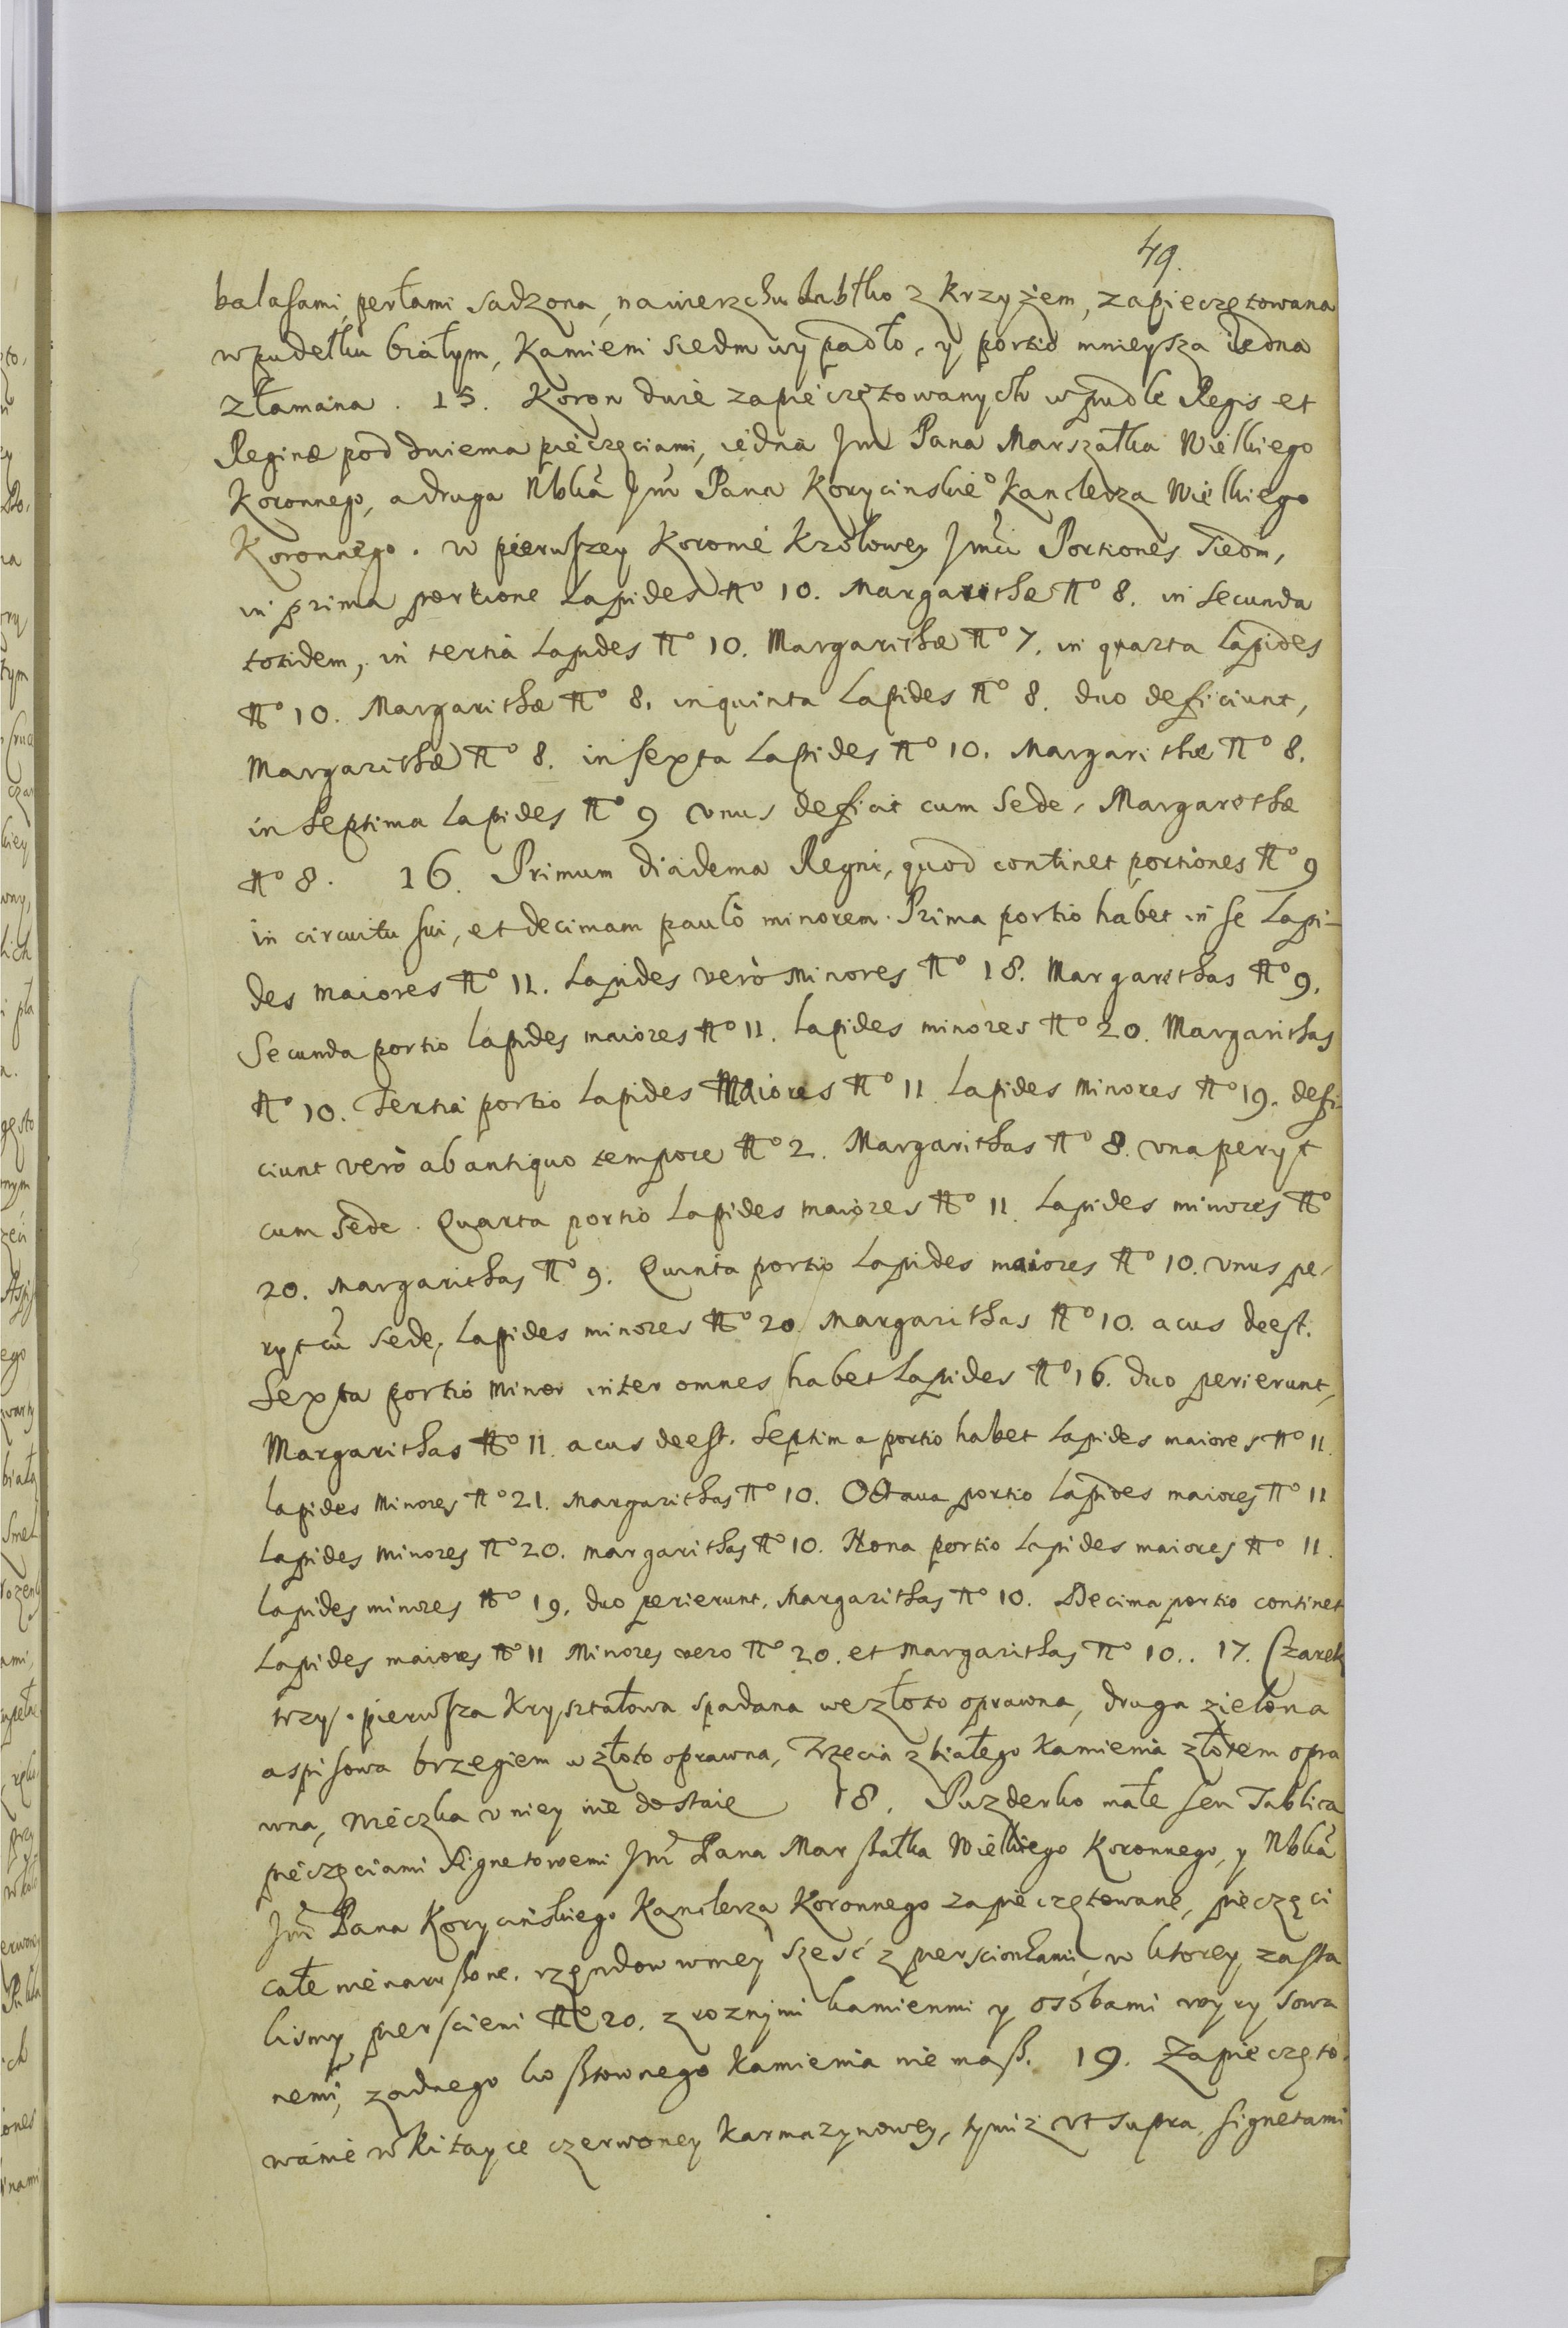 49.
balasami, perłami sadzona, nawierzchu Iabłko z krzyżem, zapieczętowana
w pudełku białym, kamieni siedm wypadło, y portio mnieysza iedna
złamana. 15. Koron dwie zapieczętowanych w pudle Regis et
Reginæ pod dwiema pieczęciami, iedna Jm Pana Marszałka Wielkiego
Koronnego, a druga Nbka Jm Pana Korycinskieº Kanclerza Wielkiego
Koronnego. w pierwszey Koronie Krolowey Jmći Portiones siedm,
in prima portione Lapides Nº 10. Margarithæ Nº 8. in secunda
totidem, in tertia Lapides Nº 10. Margarithæ Nº 7. in quarta Lapides
Nº 10. Margarithæ Nº 8. in quinta Lapides Nº 8. duo deficiunt,
Margarithæ Nº 8. in sexta Lapides Nº 10. Margarithæ Nº 8.
in septima Lapides Nº 9 vnus deficit cum sede, Margarithæ
Nº 8. 16. Primum diadema Regni, quod continet portiones Nº 9
in circuitu sui, et decimam paulò minorem. Prima portio habet in se Lapi-
des maiores Nº 11. Lapides verò minores Nº 18. Margarithas Nº 9.
Secunda portio Lapides maiores Nº 11. Lapides minores Nº 20. Margarithas
Nº 10. Tertia portio Lapides Maiores Nº 11 Lapides Minores Nº 19. defi-
ciunt verò ab antiquo tempore Nº 2. Margarithas Nº 8. vna peryt
cum sede. Quarta portio Lapides maiores Nº 11. Lapides minores Nº
20. Margarithas Nº 9. Quinta portio Lapides maiores Nº 10. vnus pe-
ryt cū sede, Lapides minores Nº 20. Margarithas Nº 10. acus deest.
Sexta portio minor inter omnes habet Lapides Nº 16. duo perierunt,
Margarithas Nº 11. acus deest. Septima portio habet Lapides maiores Nº 11.
Lapides Minores Nº 21. Margarithas Nº 10. Octaua portio Lapides maiores Nº 11
Lapides Minores Nº 20. margarithas Nº 10. Nona portio Lapides maiores Nº 11.
Lapides minores Nº 19. duo perierunt. Margarithas Nº 10. Decima portio continet
Lapides maiores Nº 11 Minores vero Nº 20. et Margarithas Nº 10.. 17. Czarek
trzy. pierwsza krysztatowa spadana we złoto oprawna, druga zielona
aspisowa brzegiem w złoto oprawna, Trzecia z białego kamienia złotem opra
wna, v niey nie dostaie 18. Puzderko małe seu Tablica
pieczęciami Signetowemi Jm̃ Pana Marszałka Wielkiego Koronnego, y Nbka
Jm̃ Pana Korycińskiego Kanclerza Koronnego zapieczętowane, pieczęci
całe nienaruszone. rzędow w niey sześć z pierscionkami, w ktorey zasta
lismy pierscieni Nº 20. z roznymi kamienmi y osóbami wyrysowa
nemi, zadnego kosztownego kamienia nie masz. 19. Zapieczęto-
wanie w kitayce czerwoney karmazynowey, tymiż vt supra signetami